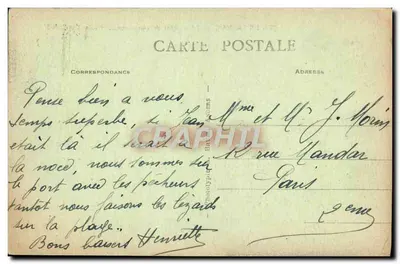 CARTE POSTALE
CORRESPONDANCE
ADRESSE
Pense bien a nous
temps superbe, si Jean
était là il serait à
la noce, nous sommes sur
le port avec les pêcheurs
tantot nous faisons les lézards
sur la plage..
Bons baisers Henriette
Mme et Mr J. Morin
12 rue Mandar
Paris
2eme